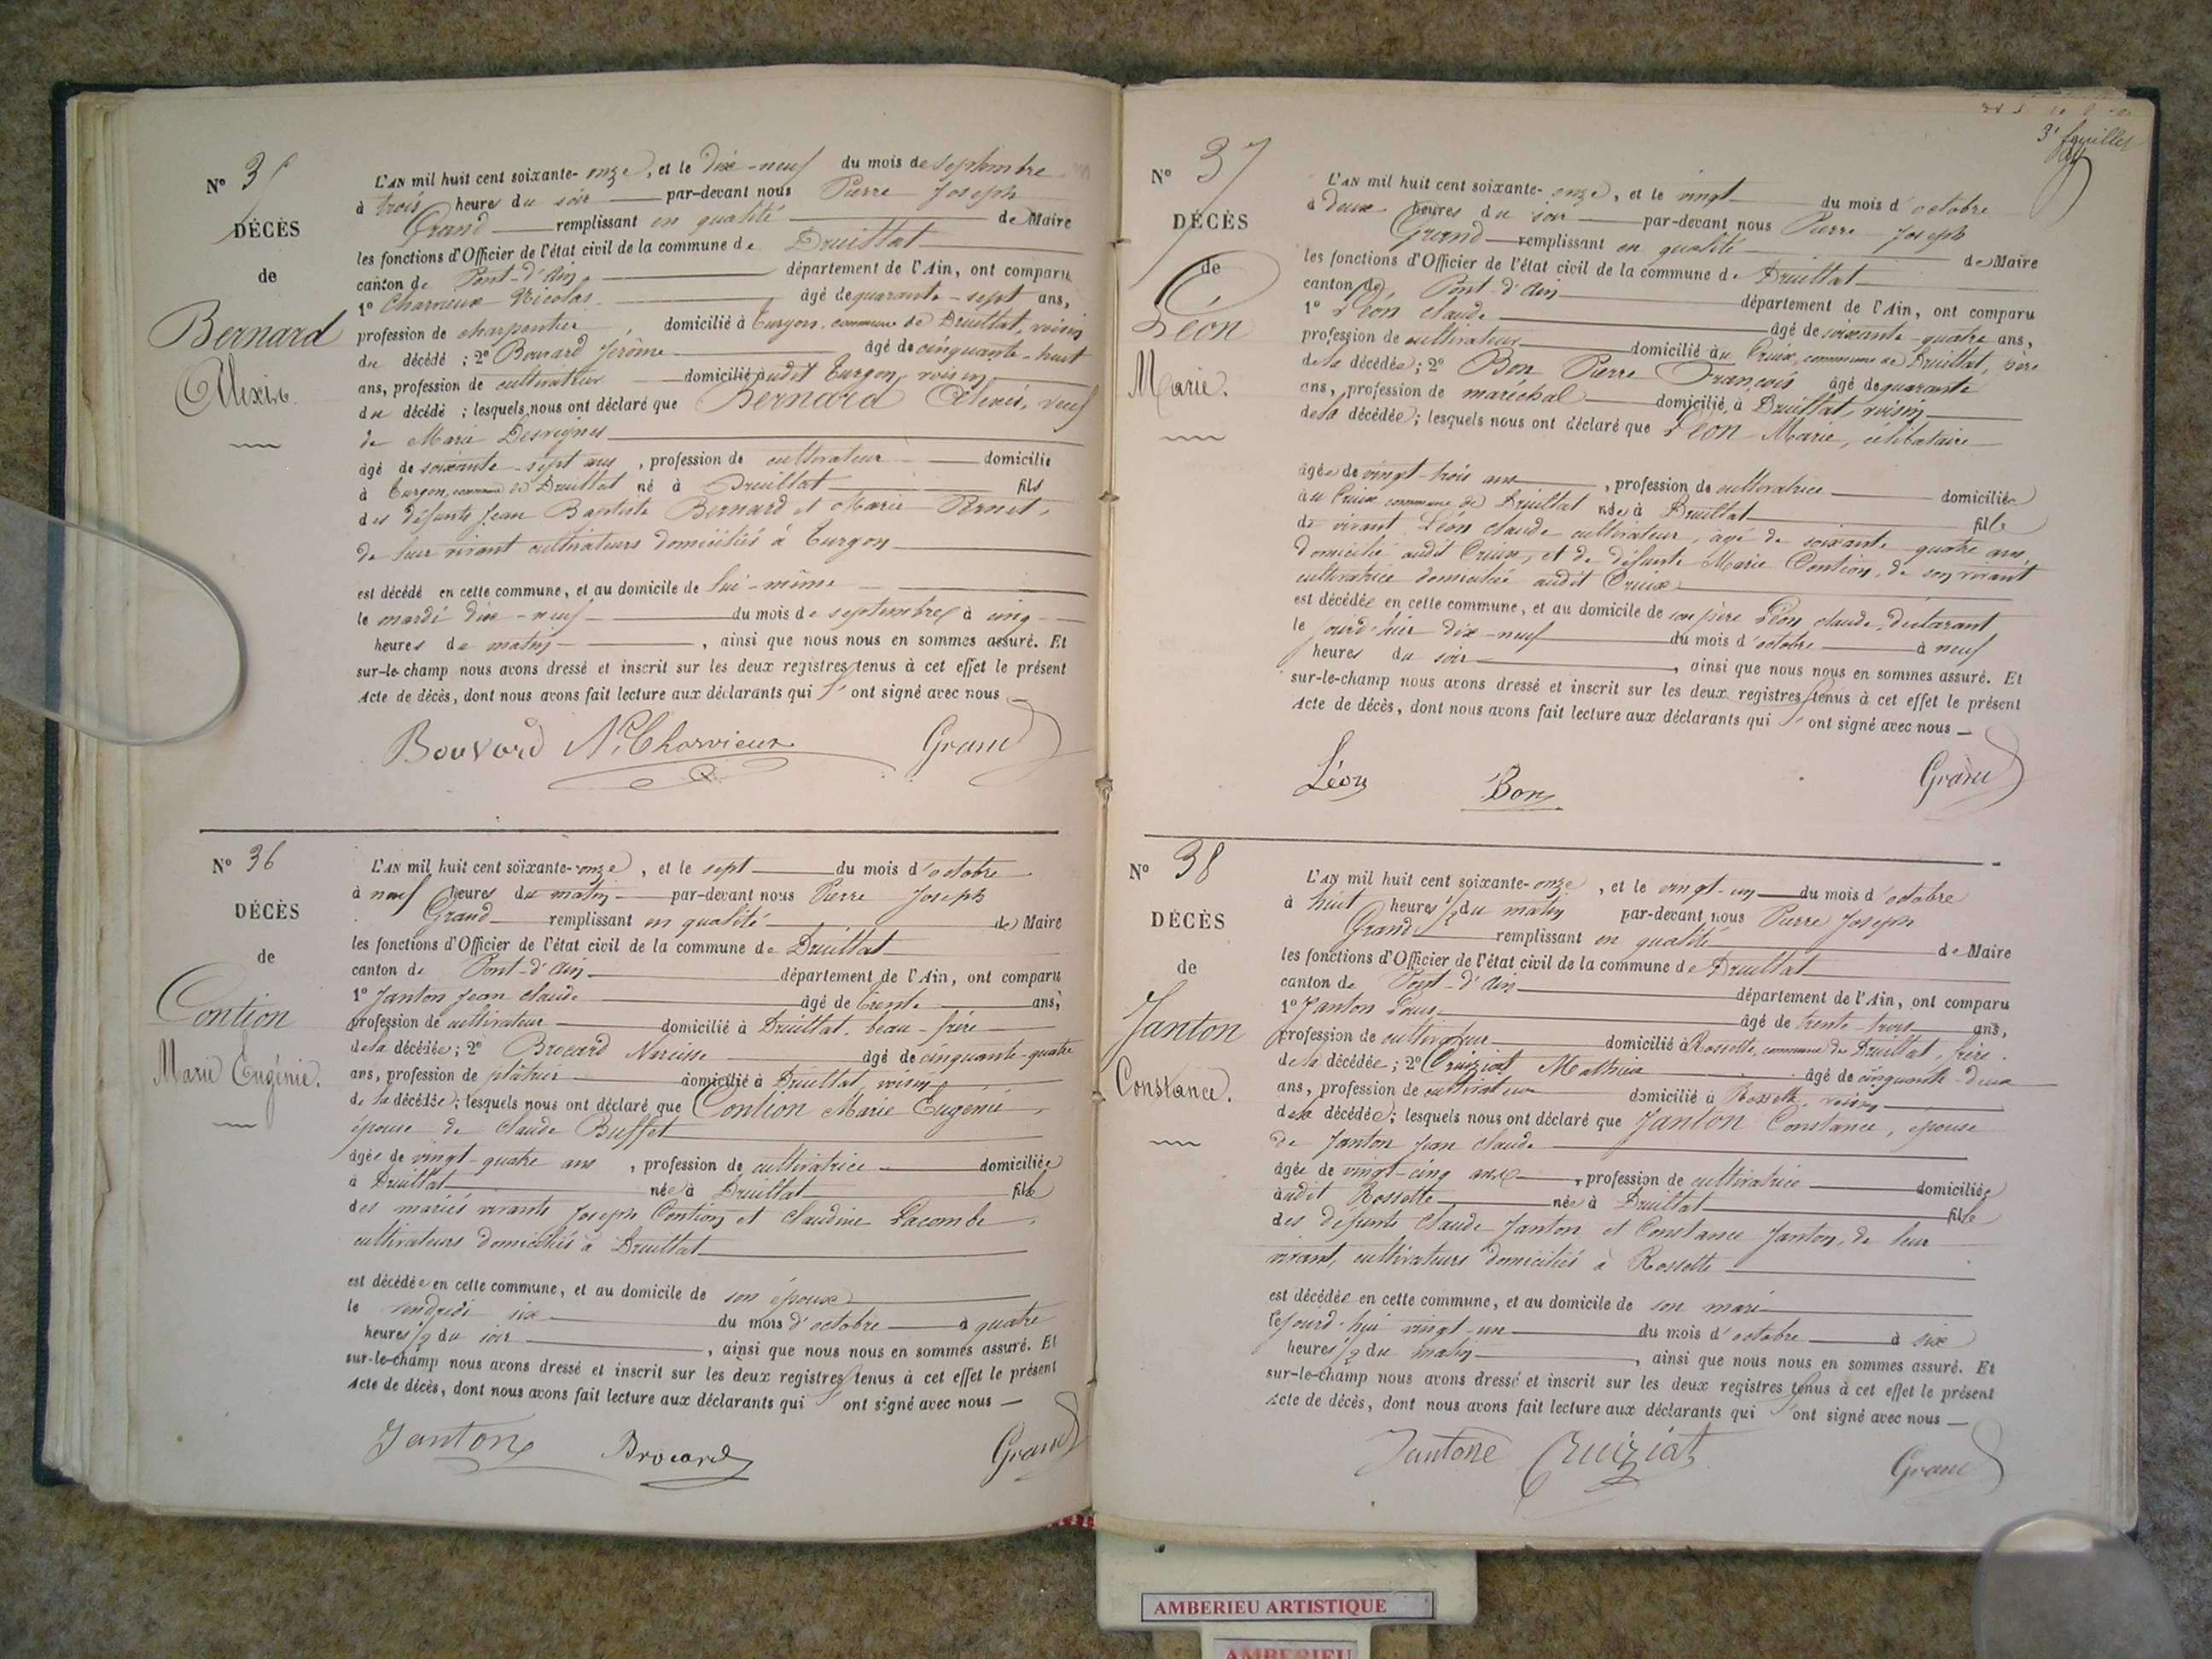 N° 35
DÉCÈS
de
Bernard
Alexis.
L'AN mil huit cent soixante-onze, et le dix-neuf du mois de septembre
à trois heures du soir par-devant nous Pierre Joseph
Grand remplissant en qualité de Maire
les fonctions d'Officier de l'état civil de la commune de Druillat
canton de Pont-d'Ain département de l'Ain, ont comparu
1° Charvieux Nicolas âgé de quarante-sept ans,
profession de charpentier, domicilié à Turgon, commune de Druillat, voisin
du décédé ; 2° Bouvard Jérôme âgé de cinquante-huit
ans, profession de cultivateur domicilié audit Turgon, voisin
du décédé ; lesquels nous ont déclaré que Bernard Alexis, veuf
de Marie Desvignes
âgé de soixante-sept ans, profession de cultivateur domicilié
à Turgon, commune de Druillat né à Druillat fils
des défunts Jean Baptiste Bernard et Marie Pernet,
de leur vivant cultivateurs domiciliés à Turgon
est décédé en cette commune, et au domicile de lui-même
le mardi dix-neuf du mois de septembre à cinq
heures de matin, ainsi que nous nous en sommes assuré. Et
sur-le-champ nous avons dressé et inscrit sur les deux registres tenus à cet effet le présent
Acte de décès, dont nous avons fait lecture aux déclarants qui l' ont signé avec nous
Bouvard N. Charvieux Grand
N° 36
DÉCÈS
de
Contion
Marie Eugénie.
L'AN mil huit cent soixante-onze, et le sept du mois d'octobre
à neuf heures du matin par-devant nous Pierre Joseph
Grand remplissant en qualité de Maire
les fonctions d'Officier de l'état civil de la commune de Druillat
canton de Pont-d'Ain département de l'Ain, ont comparu
1° Janton Jean Claude âgé de trente ans,
profession de cultivateur domicilié à Druillat, beau-frère
de la décédée ; 2° Brocard Narcisse âgé de cinquante-quatre
ans, profession de plâtrier domicilié à Druillat, voisin
de la décédée ; lesquels nous ont déclaré que Contion Marie Eugénie,
épouse de Claude Buffet
âgée de vingt-quatre ans, profession de cultivatrice domiciliée
à Druillat née à Druillat fille
des mariés vivants Joseph Contion et Claudine Lacombe,
cultivateurs domiciliés à Druillat
est décédée en cette commune, et au domicile de son époux
le vendredi six du mois d'octobre à quatre
heures 1/2 du soir, ainsi que nous nous en sommes assuré. Et
sur-le-champ nous avons dressé et inscrit sur les deux registres tenus à cet effet le présent
Acte de décès, dont nous avons fait lecture aux déclarants qui l' ont signé avec nous
Janton Brocard Grand
3e feuillet
N° 37
DÉCÈS
de
Léon
Marie.
L'AN mil huit cent soixante-onze, et le vingt du mois d'octobre
à deux heures du soir par-devant nous Pierre Joseph
Grand remplissant en qualité de Maire
les fonctions d'Officier de l'état civil de la commune de Druillat
canton de Pont-d'Ain département de l'Ain, ont comparu
1° Léon Claude âgé de soixante-quatre ans,
profession de cultivateur domicilié au Creux, commune de Druillat, père
de la décédée ; 2° Bon Pierre François âgé de quarante
ans, profession de maréchal domicilié à Druillat, voisin
de la décédée ; lesquels nous ont déclaré que Léon Marie, célibataire
âgée de vingt-trois ans, profession de cultivatrice domiciliée
au Creux commune de Druillat née à Druillat fille
de vivant Léon Claude cultivateur, âgé de soixante quatre ans,
domicilié audit Creux, et de défunte Marie Contion, de son vivant
cultivatrice domiciliée audit Creux
est décédée en cette commune, et au domicile de son père Léon Claude, déclarant
le jourd'hier dix-neuf du mois d'octobre à neuf
heures du soir, ainsi que nous nous en sommes assuré. Et
sur-le-champ nous avons dressé et inscrit sur les deux registres tenus à cet effet le présent
Acte de décès, dont nous avons fait lecture aux déclarants qui l' ont signé avec nous
Léon Bon Grand
N° 38
DÉCÈS
de
Janton
Constance.
L'AN mil huit cent soixante-onze, et le vingt-un du mois d'octobre
à huit heures 1/2 du matin par-devant nous Pierre Joseph
Grand remplissant en qualité de Maire
les fonctions d'Officier de l'état civil de la commune de Druillat
canton de Pont-d'Ain département de l'Ain, ont comparu
1° Janton Louis âgé de trente-trois ans,
profession de cultivateur domicilié à Rossette, commune de Druillat, frère
de la décédée ; 2° Cruiziat Mathieu âgé de cinquante-deux
ans, profession de cultivateur domicilié à Rossette, voisin
de la décédée ; lesquels nous ont déclaré que Janton Constance, épouse
de Janton Jean Claude
âgée de vingt-cinq ans, profession de cultivatrice domiciliée
audit Rossette née à Druillat fille
des défunts Claude Janton et Constance Janton, de leur
vivant, cultivateurs domiciliés à Rossette
est décédée en cette commune, et au domicile de son mari
cejourd'hui vingt-un du mois d'octobre à six
heures 1/2 du matin, ainsi que nous nous en sommes assuré. Et
sur-le-champ nous avons dressé et inscrit sur les deux registres tenus à cet effet le présent
Acte de décès, dont nous avons fait lecture aux déclarants qui l' ont signé avec nous
Jantone Cruiziat Grand
AMBERIEU ARTISTIQUE
AMBERIEU